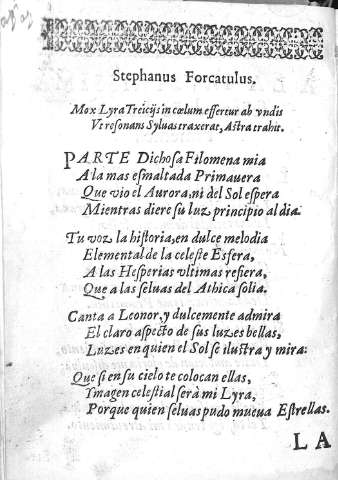 Stephanus Forcatulus.
Mox Lyra Treicijs in cœlum effertur ab vndis
Vt resonans Syluas traxerat, Astra trahit.
PARTE Dichosa Filomena mia
A la mas esmaltada Primauera
Que vio el Aurora, ni del Sol espera
Mientras diere su luz principio al dia.
Tu voz la historia, en dulce melodia
Elemental de la celeste Esfera,
A las Hesperias vltimas refiera,
Que a las seluas del Athica solia.
Canta a Leonor, y dulcemente admira
El claro aspecto de sus luzes bellas,
Luzes en quien el Sol se ilustra y mira:
Que si en su cielo te colocan ellas,
Ymagen celestial serà mi Lyra,
Porque quien seluas pudo mueua Estrellas.
LA